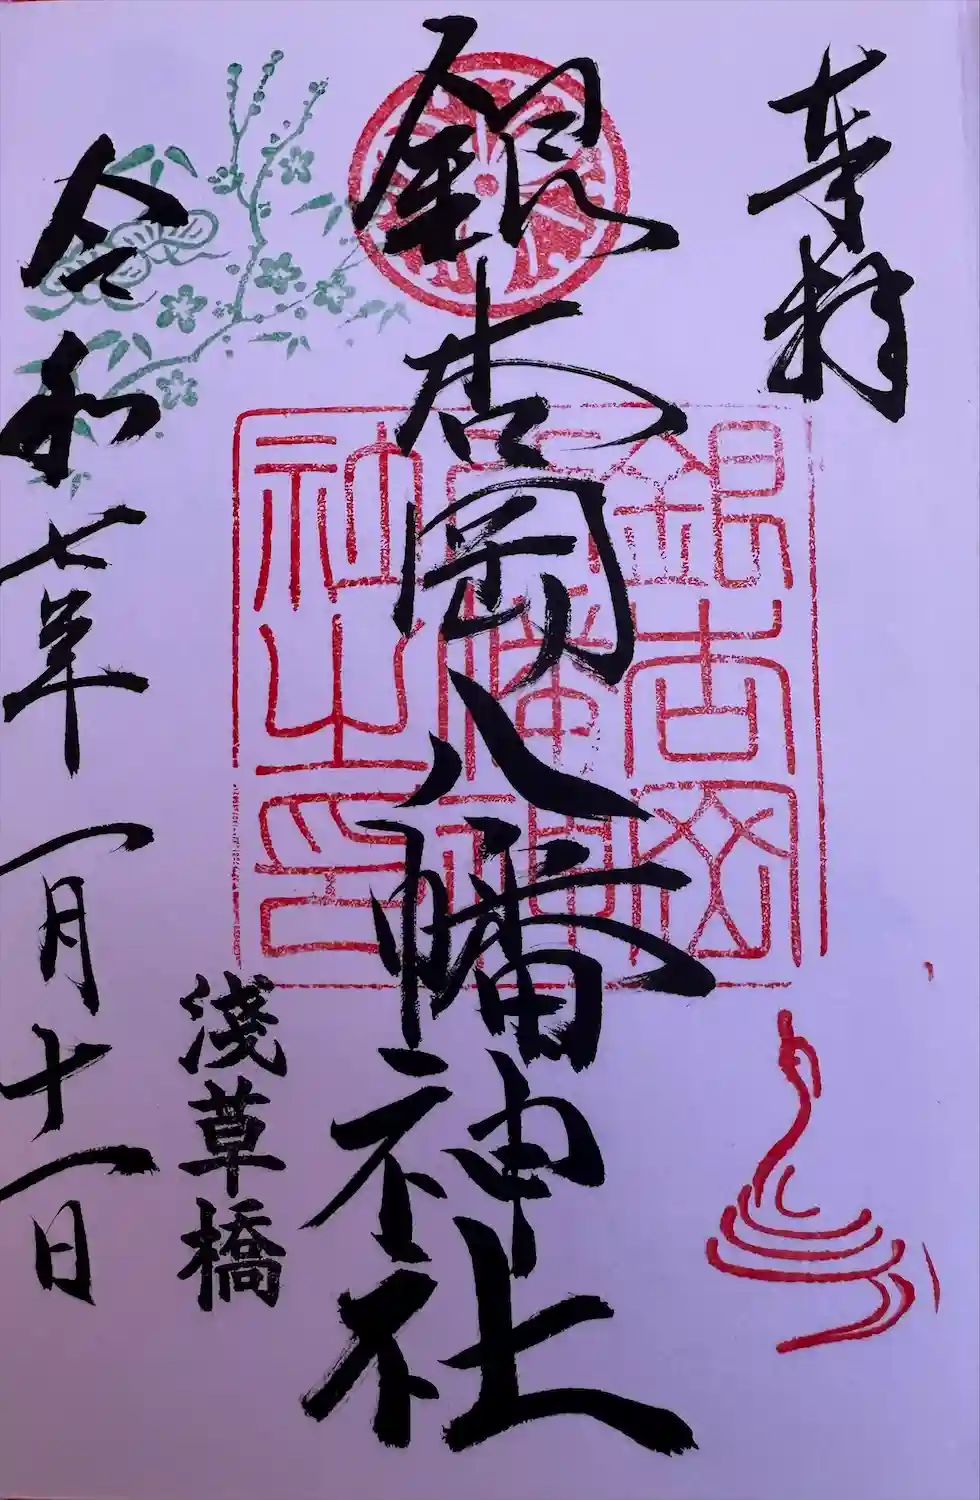 奉拝
銀杏岡八幡神社
銀杏岡八幡神社之印
浅草橋
令和七年一月十一日